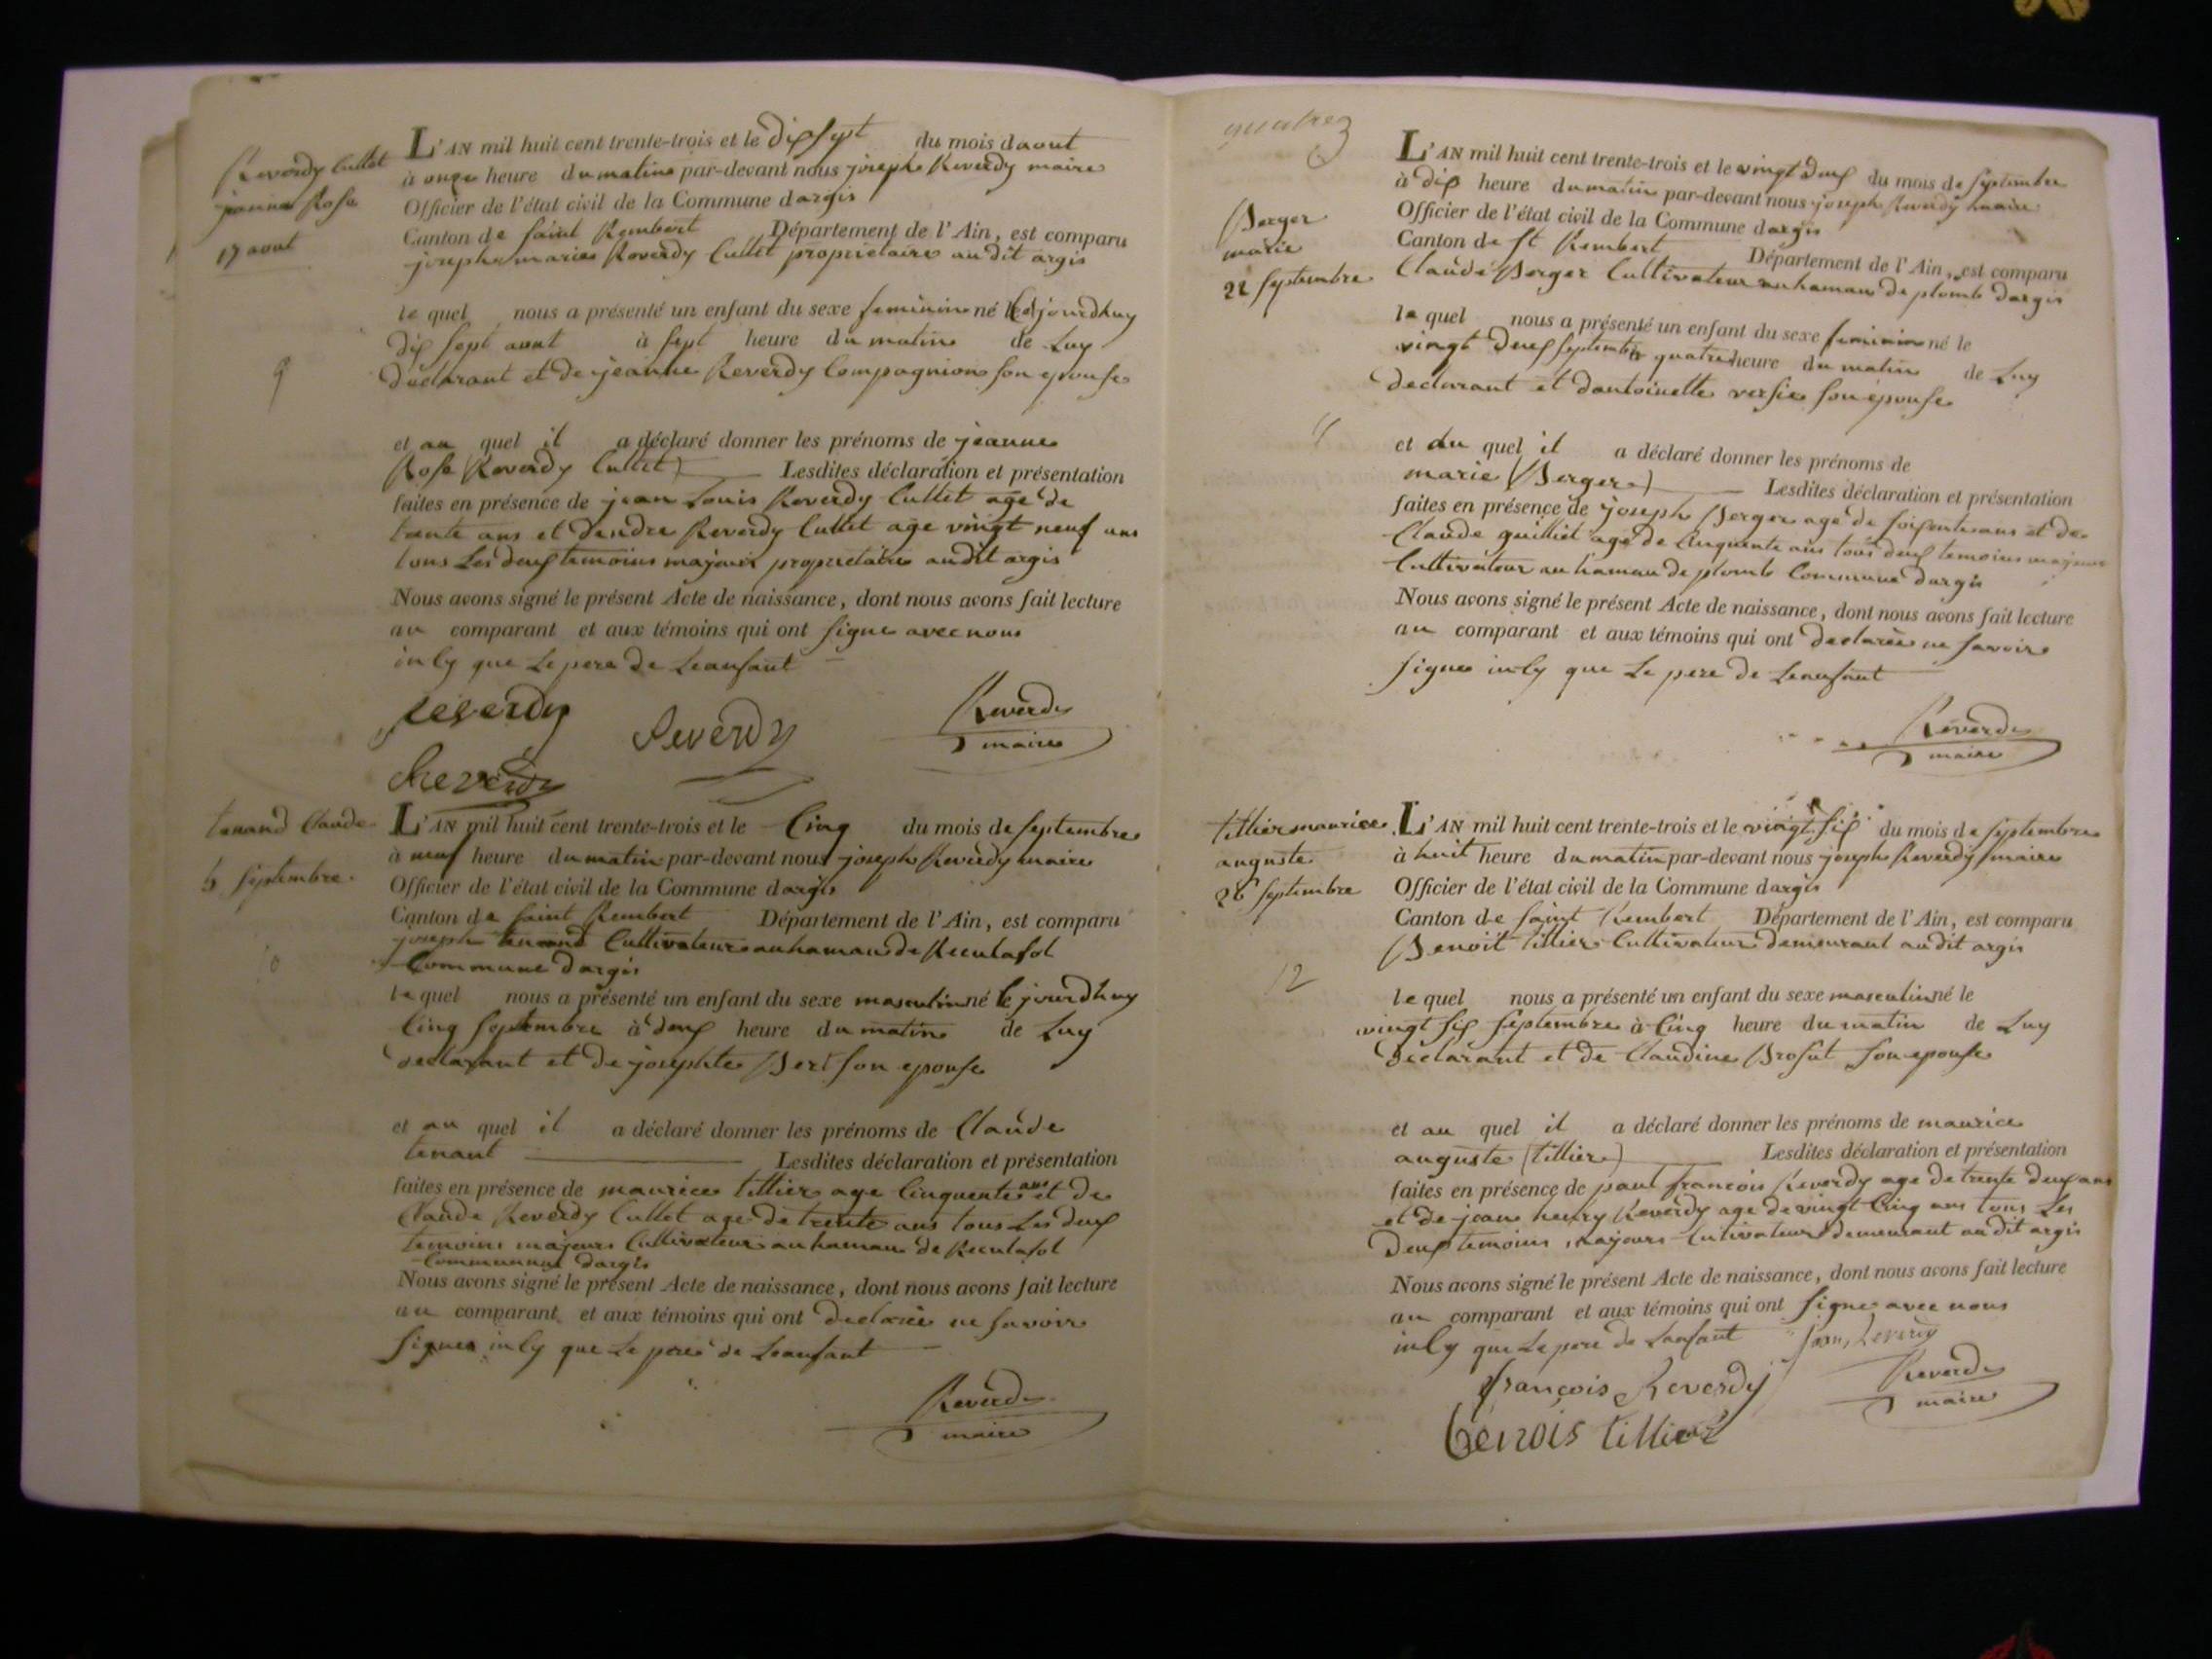 Reverdy Cullet
jeanne Rose
17 aout
9
L'AN mil huit cent trente-trois et le dix sept du mois daout
à onze heure du matin par-devant nous joseph Reverdy maire
Officier de l'état civil de la Commune dargis
Canton de saint Rembert Département de l'Ain, est comparu
joseph marie Reverdy Cullet propriétaire au dit argis
le quel nous a présenté un enfant du sexe feminin né le jourdhuy
dix sept aout à sept heure du matin de Luy
declarant et de jeanne Reverdy Compagnion son epouse
et au quel il a déclaré donner les prénoms de jeanne
Rose (Reverdy Cullet) Lesdites déclaration et présentation
faites en présence de jean Louis Reverdy Cullet age de
trente ans et dandre Reverdy Cullet age vingt neuf ans
tous Les deux temoins majeurs propriétaire au dit argis
Nous avons signé le présent Acte de naissance, dont nous avons fait lecture
au comparant et aux témoins qui ont signe avec nous
incy que Le pere de Leanfant
reverdy
Reverdy
Reverdy
maire
Reverdy
tenand Claude
5 septembre
10
L'AN mil huit cent trente-trois et le Cinq du mois de septembre
à neuf heure du matin par-devant nous joseph Reverdy maire
Officier de l'état civil de la Commune dargis
Canton de saint Rembert Département de l'Ain, est comparu
joseph tenand Cultivateur au hamau de Reculafol
Commune dargis
le quel nous a présenté un enfant du sexe masculin né le jourdhuy
Cinq septembre à deux heure du matin de Luy
declarant et de josephte Bert son epouse
et au quel il a déclaré donner les prénoms de Claude
tenant Lesdites déclaration et présentation
faites en présence de maurice tillier age Cinquente ans et de
Claude Reverdy Cullet age de trente ans tous Les deux
temoins majeurs Cultivateur au hamau de Reculafol
Commune dargis
Nous avons signé le présent Acte de naissance, dont nous avons fait lecture
au comparant et aux témoins qui ont declaré ne savoir
signer incy que Le pere de Leanfant
Reverdy
maire
quatre
Berger
marie
22 septembre
L'AN mil huit cent trente-trois et le vingt deux du mois de septembre
à dix heure du matin par-devant nous joseph Reverdy maire
Officier de l'état civil de la Commune dargis
Canton de St Rembert Département de l'Ain, est comparu
Claude Berger Cultivateur au hamau de plomb dargis
le quel nous a présenté un enfant du sexe feminin né le
vingt deux septembre quatre heure du matin de Luy
declarant et dantoinette versie son epouse
et au quel il a déclaré donner les prénoms de
marie (Berger) Lesdites déclaration et présentation
faites en présence de joseph Berger age de soixente ans et de
Claude guilliet age de Cinquente ans tous deux temoins majeurs
Cultivateur au hamau de plomb Commune dargis
Nous avons signé le présent Acte de naissance, dont nous avons fait lecture
au comparant et aux témoins qui ont declarée ne savoir
signer incy que Le pere de Leanfant
Reverdy
maire
tillier maurice
auguste
26 septembre
12
L'AN mil huit cent trente-trois et le vingt six du mois de septembre
à huit heure du matin par-devant nous joseph Reverdy maire
Officier de l'état civil de la Commune dargis
Canton de saint Rembert Département de l'Ain, est comparu
Benoit tillier Cultivateur demeurant au dit argis
le quel nous a présenté un enfant du sexe masculin né le
vingt six septembre à Cinq heure du matin de Luy
declarant et de Claudine Brosut son epouse
et au quel il a déclaré donner les prénoms de maurice
auguste (tillier) Lesdites déclaration et présentation
faites en présence de paul francois Reverdy age de trente deux ans
et de jean henry Reverdy age de vingt Cinq ans tous Les
deux temoins majeurs Cutivateur demeurant au dit argis
Nous avons signé le présent Acte de naissance, dont nous avons fait lecture
au comparant et aux témoins qui ont signe avec nous
incy que Le pere de Lanfant Jean Reverdy
françois Reverdy
Reverdy
maire
benois tillier